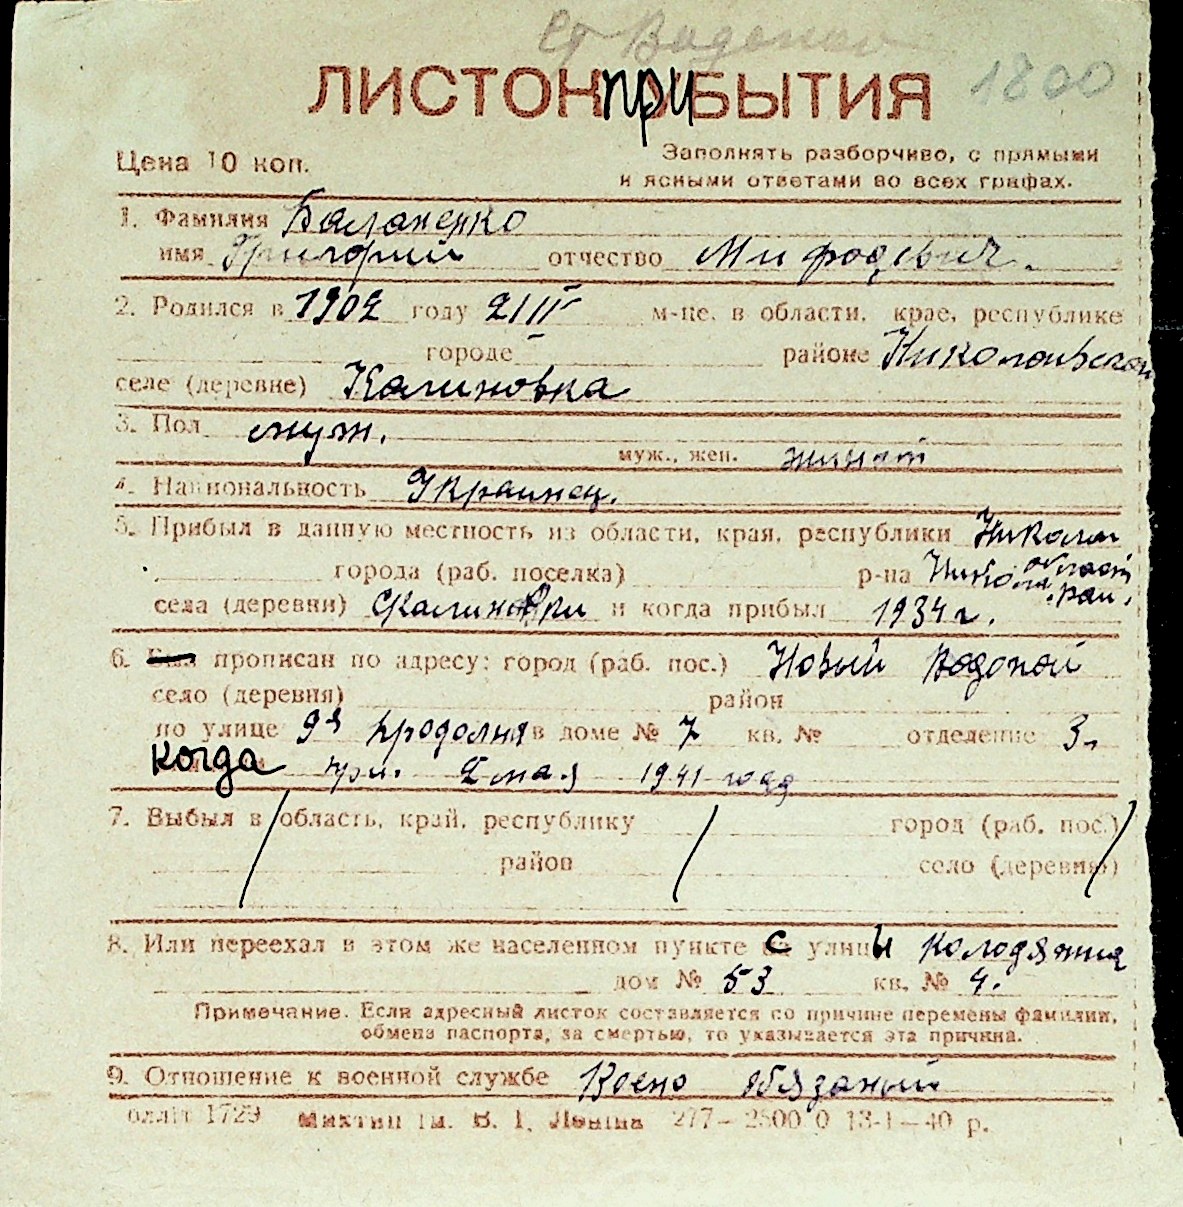 Ст Водопой
1800
ЛИСТОК ПРИБЫТИЯ
Цена 10 коп.
Заполнять разборчиво, с прямыми
и ясными ответами во всех графах.
1. Фамилия Баланенко
имя Григорий отчество Мифодевич.
2. Родился в 1902 году 2/II м-це, в области, крае, республике
городе районе Николаевском
селе (деревне) Калиновка
3. Пол муж.
муж., жен. женат
4. Национальность Украинец.
5. Прибыл в данную местность из области, края, республики Николаи
области
города (раб. поселка) р-на Никола. рай.
села (деревни) Калиновки и когда прибыл 1934 г.
6. Был прописан по адресу: город (раб. пос.) Новый Водопой
село (деревня) район
по улице 9я продолня в доме № 7 кв. № отделение 3.
когда при. 2 мая 1941 году
7. Выбыл в область, край, республику город (раб. пос.)
район село (деревню)
8. Или переехал в этом же населенном пункте с улицы Колодязния
дом № 53 кв. № 4.
Примечание. Если адресный листок составляется по причине перемены фамилии,
обмена паспорта, за смертью, то указывается эта причина.
9. Отношение к военной службе Воено обязаный
1729 ім. В. І. Леніна 277—2500 0 13-1—40 р.